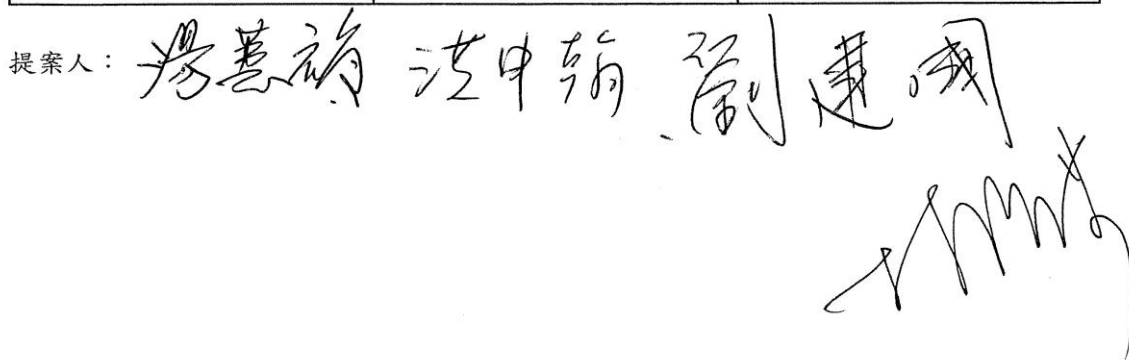 提案人：湯蕙禎 洪申翰 劉建國